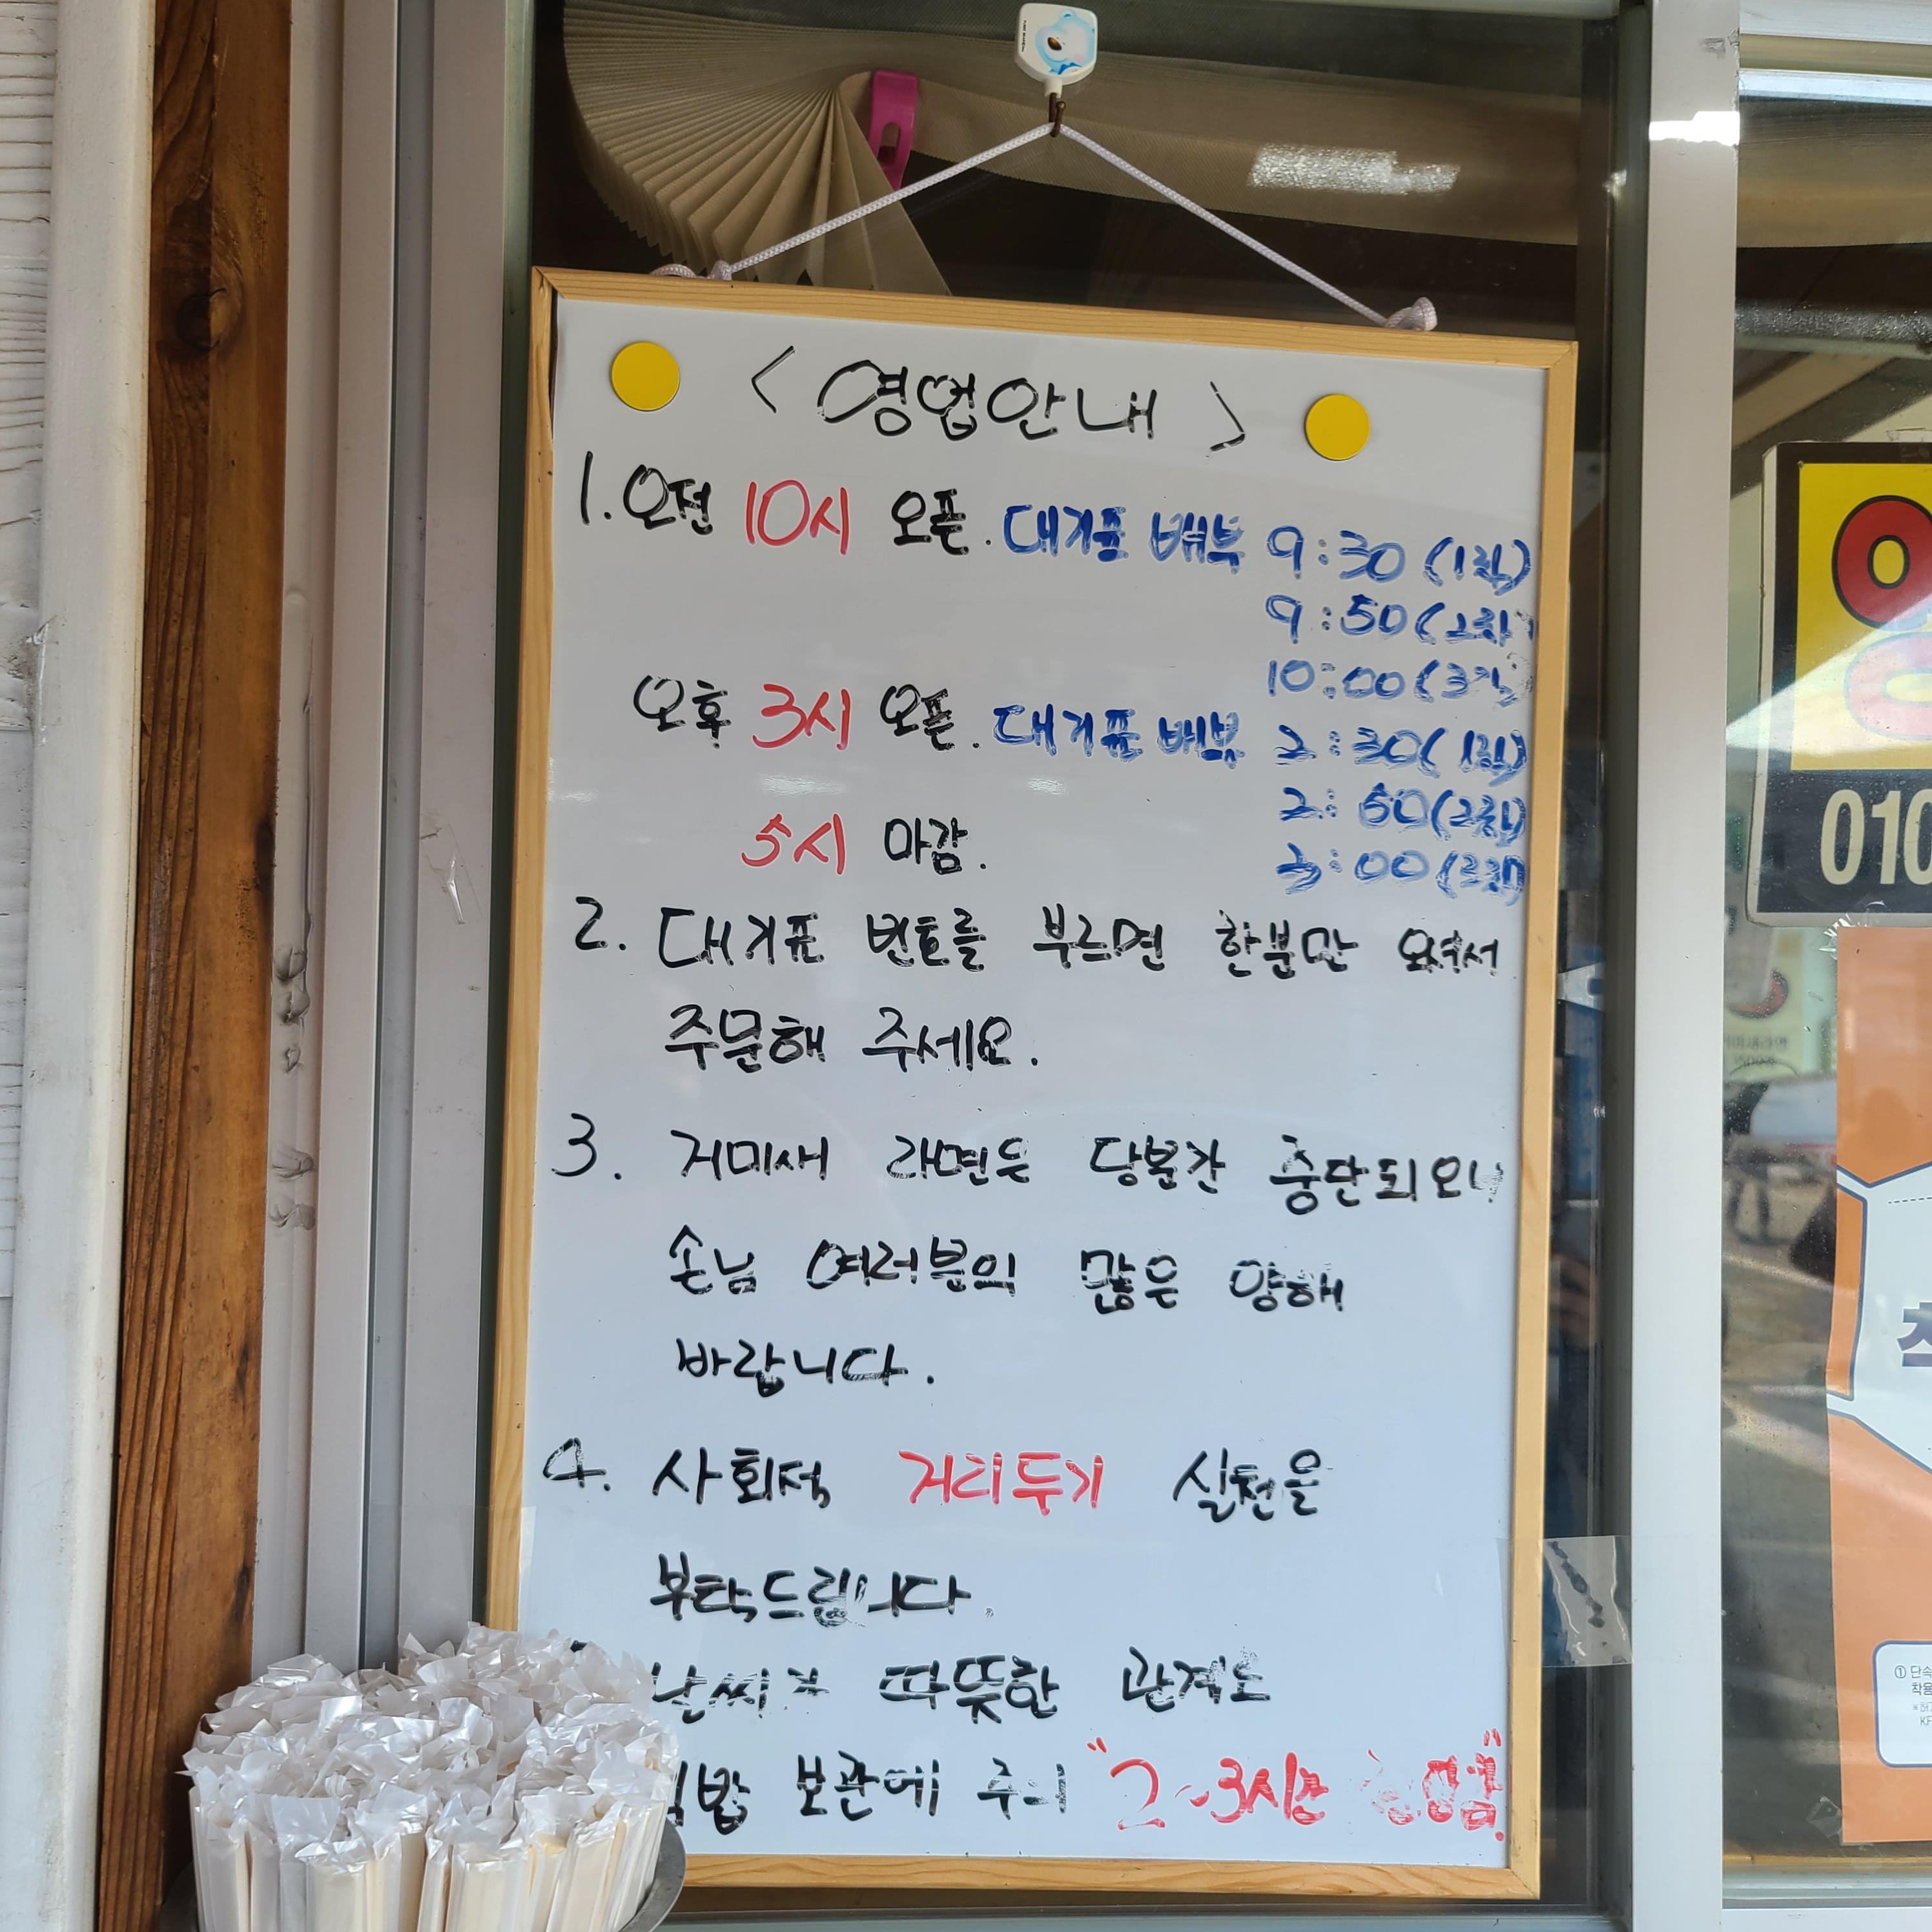 < 영업안내 >
1. 오전 10시 오픈. 대기표 배부 9:30 (1차)
9:50 (2차)
10:00 (3차)
오후 3시 오픈. 대기표 배부 2:30 (1차)
2:50 (2차)
5시 마감.
3:00 (3차)
2. 대기표 번호를 부르면 한분만 오셔서
주문해 주세요.
3. 거미새 라면은 당분간 중단되오니
손님 여러분의 많은 양해
바랍니다.
4. 사회적 거리두기 실천을
부탁드립니다.
날씨가 따뜻한 관계로
보관에 주의 "2~3시간
010
① 단속
착용